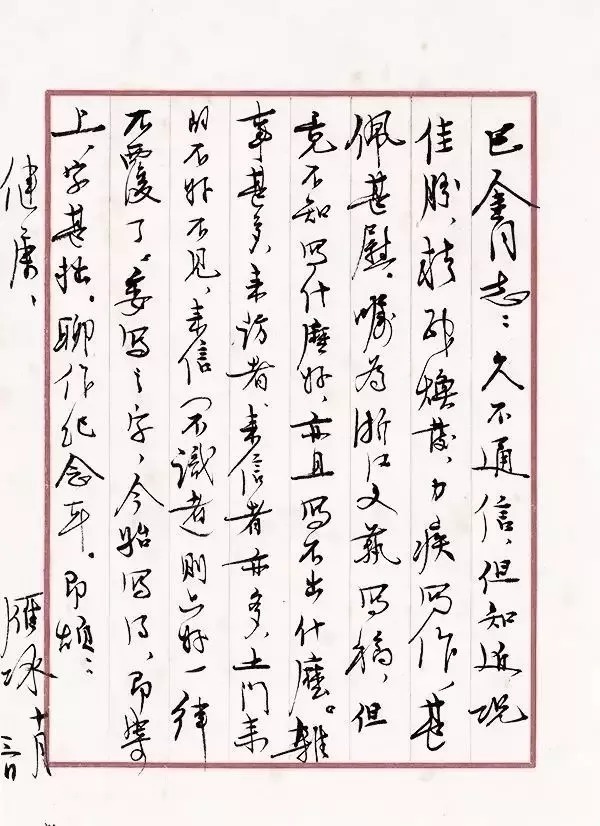 巴金同志：久不通信，但知近况
佳胜，精神焕发，力疾写作，甚
佩甚慰。嘱为浙江文艺写稿，但
竟不知写什麽好，亦且写不出什麽。杂
事甚多，来访者、来信者亦多，上门来
的不好不见，来信（不識者）则只好一律
不覆了。委写之字，今始写得，即寄
上，字甚拙，聊作纪念耳。即颂：
健康、
雁冰 十月
三日